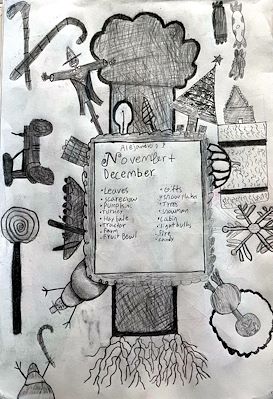 November +
December
•Leaves
•scarecrow
•Pumpkin
•Turkey
•Hay bale
•Tractor
•Fruit Bowl
•Gifts
•snowflakes
•Trees
•snowman
•cabin
•lightbulbs
•candy